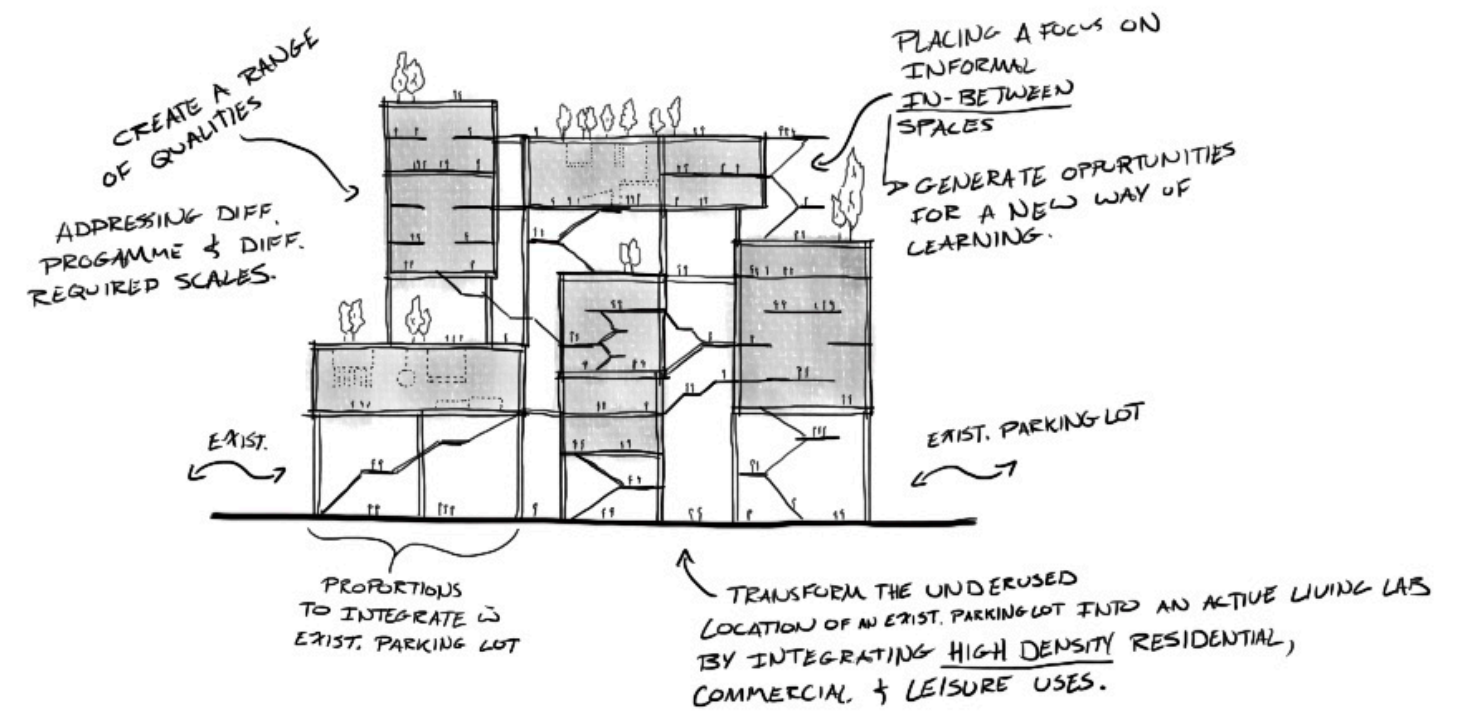 CREATE A RANGE
OF QUALITIES
ADDRESSING DIFF.
PROGAMME & DIFF.
REQUIRED SCALES.
PLACING A FOCUS ON
INFORMAL
IN-BETWEEN
SPACES
GENERATE OPPURTUNITIES
FOR A NEW WAY OF
LEARNING.
EXIST.
EXIST. PARKING LOT
PROPORTIONS
TO INTEGRATE w̄
EXIST. PARKING LOT
TRANSFORM THE UNDERUSED
LOCATION OF AN EXIST. PARKING LOT INTO AN ACTIVE LIVING LAB
BY INTEGRATING HIGH DENSITY RESIDENTIAL,
COMMERCIAL & LEISURE USES.